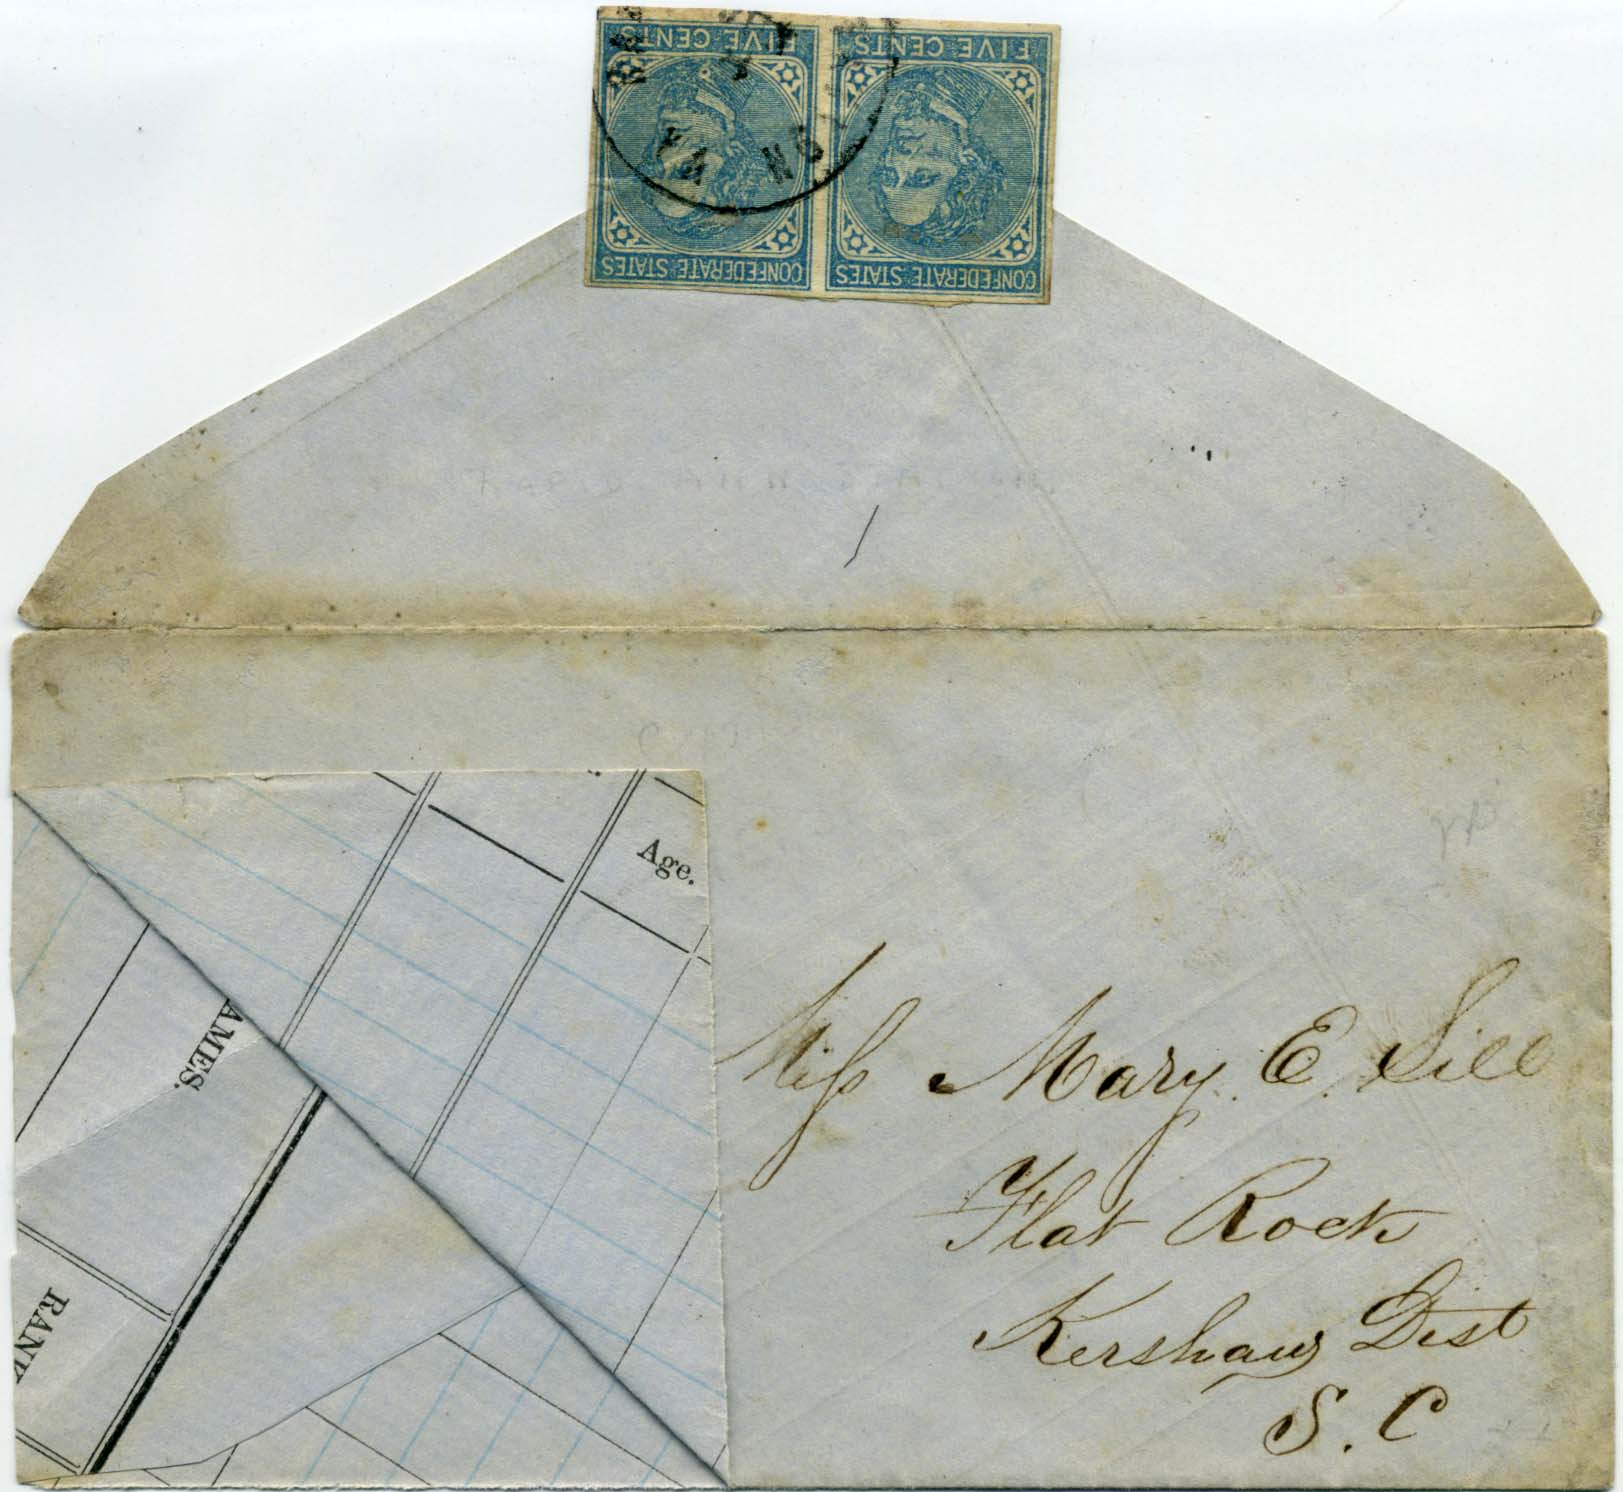 FIVE CENTS FIVE CENTS
CONFEDERATE STATES CONFEDERATE STATES
Age.
AMES.
RANK
Miss Mary. E. Sill
Flat Rock
Kershaw Dist
S. C